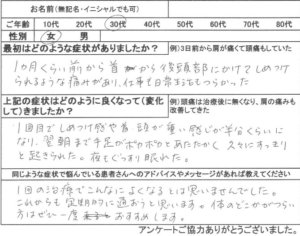 お名前(無記名・イニシャルでも可)
ご年齢 10代 20代 30代 40代 50代 60代 70代
性別 女 男
最初はどのような症状がありましたか? 例)3日前から肩が痛くて頭痛もしていた
1カ月くらい前から首から後頭部にかけてしめつけ
られるような痛みがあり、仕事も日常生活もつらかった
上記の症状はどのように良くなって(変化して)きましたか? 例)頭痛は治療後に無くなり、肩の痛みも改善してきた
1回目でしめつけ感や首 頭が重い感じが半分くらいに
なり、翌朝まで手足がポカポカとあたたかく スッキリすっきり
と起きられた。夜もぐっすり眠れた。
同じような症状で悩んでいる患者さんへのアドバイスやメッセージがあれば教えてください
1回の治療でこんなによくなるとは思いませんでした。
これからも定期的に通おうと思います。体のどこかがつらい
方はぜひ一度おすすめします。
アンケートご協力ありがとうございました。